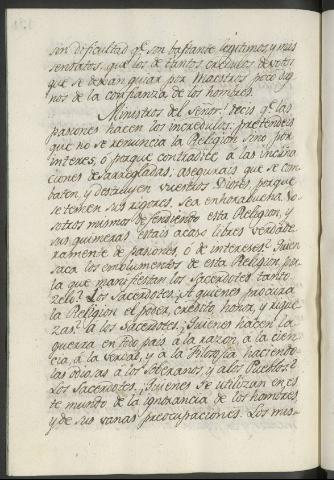 sin dificultad qe. son bastante legitimos y mas
sensatos, que los de tantos credulos devotos
que se dexan guiar por Maestros poco dig
nos de la confianza de los hombres.
Ministros del Señor! decis qe. las
pasiones hacen los incredulos: pretendeis
que no se renuncia la Religion sino por
interes, ó porque contradice à las inclina
ciones desarregladas: asegurais que se com-
baten, y destruyen vuestros Dioses, porque
se temen sus rigores. Sea enhorabuena. Vo
sotros mismos defendiendo esta Religion, y
sus quimeras estais acaso libres verdade
ramente de pasiones, ó de intereses? Quien
saca los emolumentos de esta Religion, por
la que manifiestan los Sacerdotes tanto
zelo? Los Sacerdotes. ¿A quienes procura
la Religion el poder, credito, honor, y rique
zas? à los Sacerdotes. ¿Quienes hacen la
guerra en todo pais à la razon, à la cien
cia, à la verdad, y à la Filosofia haciendo
las odiosas à los Soberanos, y à los Pueblos?
Los Sacerdotes. ¿Quienes se utilizan en es
te mundo de la ignorancia de los hombres,
y de sus vanas preocupaciones. Los mis-